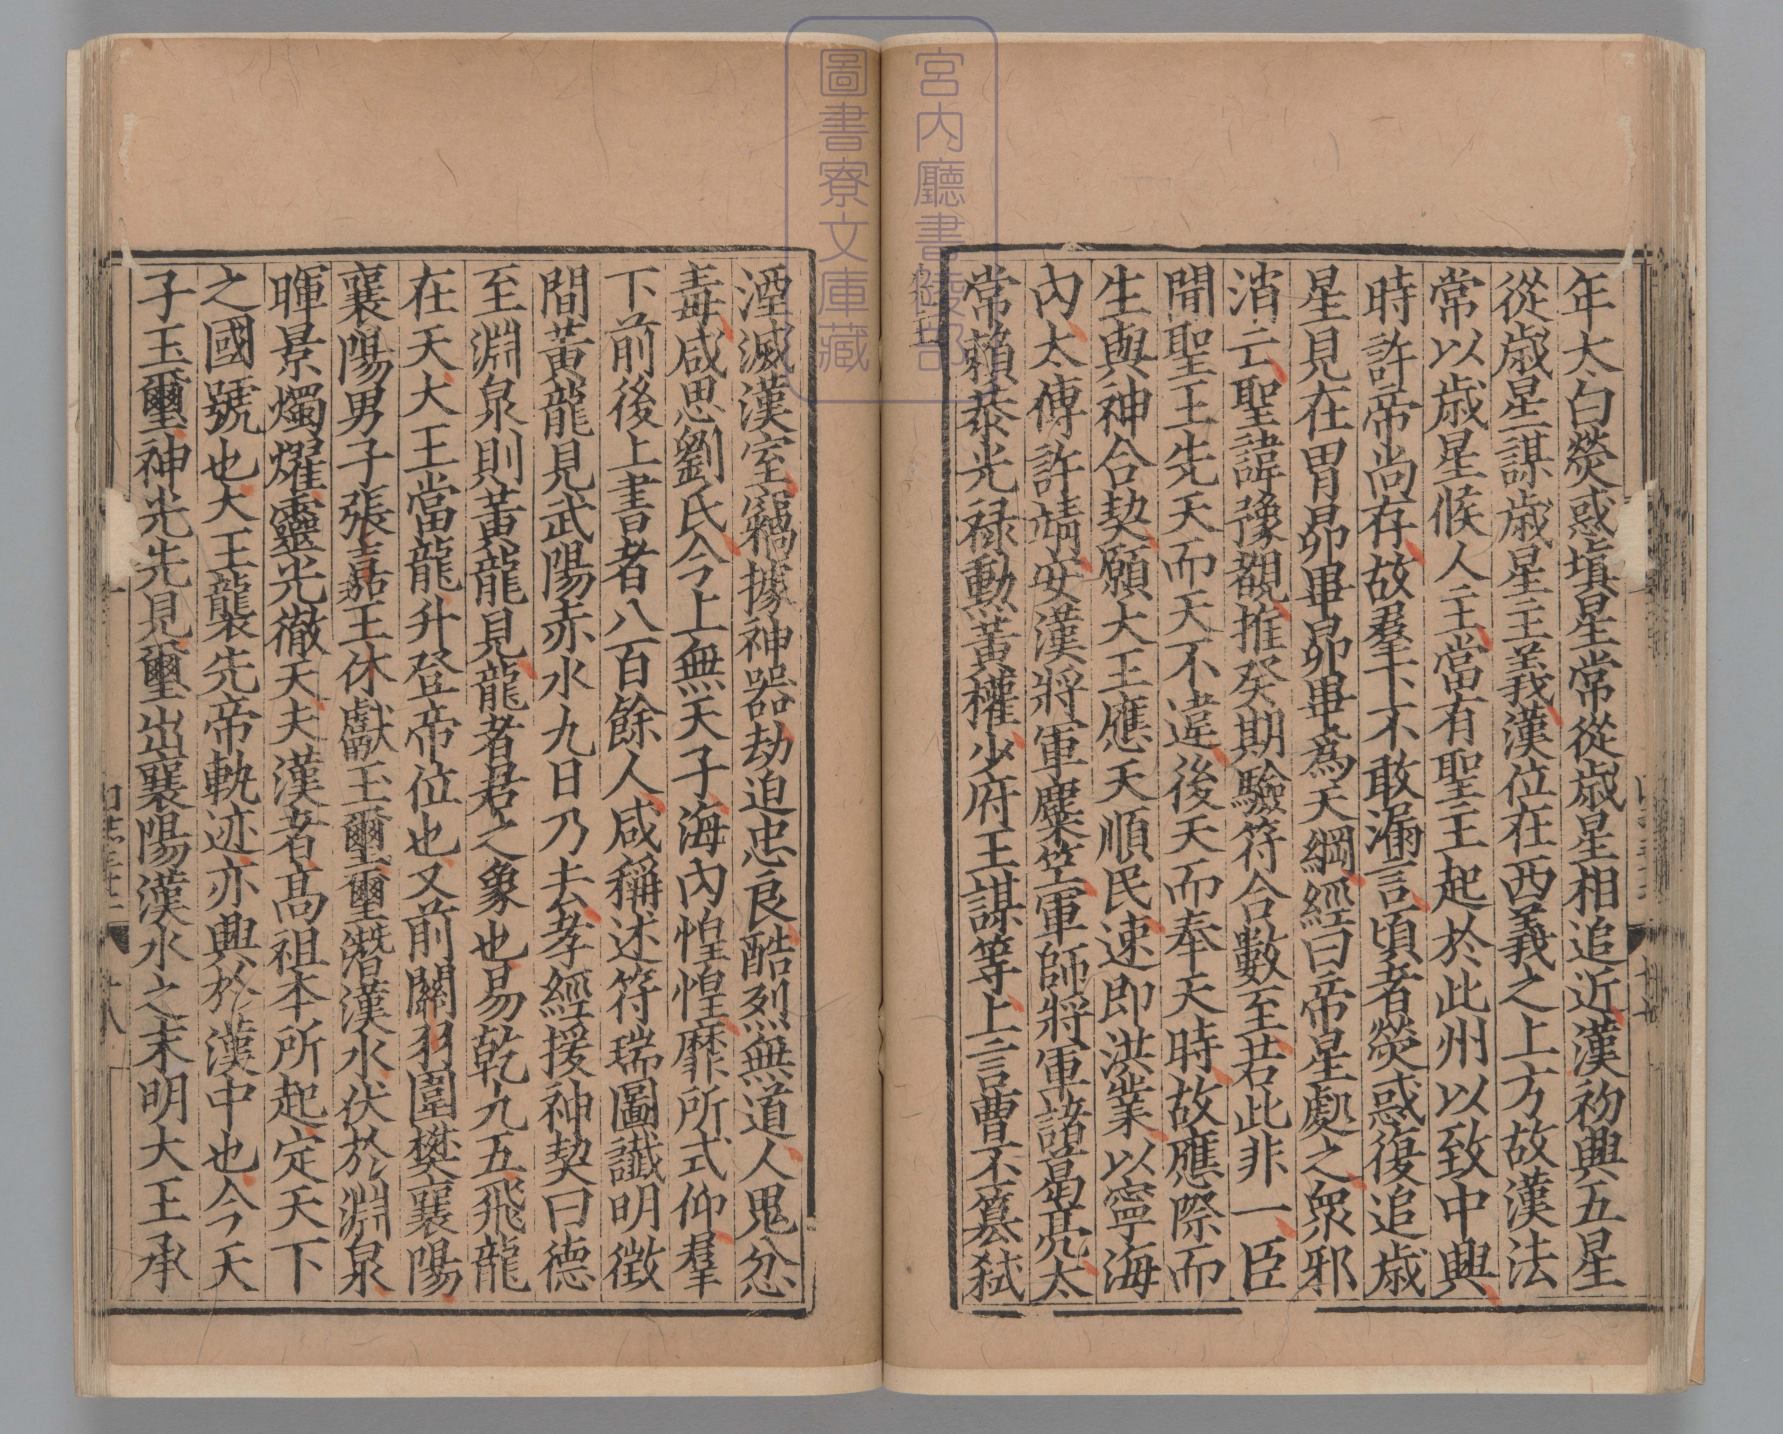 年太白熒惑塡星常從歳星相追近漢初興五星
從歳星謀歳星主義漢位在西義之上方故漢法
常以歳星候人主當有聖主起於此州以致中興
時許帝尚存故羣下不敢漏言頃者熒惑復追歳
星見在胃昴畢昴畢爲天綱經曰帝星處之衆邪
消亡聖諱豫覩推癸期驗符合數至若此非一臣
聞聖王先天而天不違後天而奉天時故應際而
生與神合契願大王應天順民速即洪業以寧海
內太傅許靖安漢將軍麋笁軍師將軍諸葛亮太
常賴恭光禄勳黃權少府王謀等上言曹丕簒弑
湮滅漢室竊據神器劫迫忠良酷烈無道人鬼忿
毒咸思劉氏今上無天子海內惶惶靡所式仰羣
下前後上書者八百餘人咸稱述符瑞圖讖明徵
間黃龍見武陽赤水九日乃去孝經援神契曰德
至淵泉則黃龍見龍者君之象也易乾九五飛龍
在天大王當龍升登帝位也又前關羽圍樊襄陽
襄陽男子張嘉王休獻玉璽璽潛漢水伏於淵泉
暉景燭燿靈光徹天夫漢者高祖本所起定天下
之國號也大王襲先帝軌迹亦興於漢中也今天
子玉璽神光先見璽出襄陽漢水之末明大王承
宮內廳書陵部
圖書寮文庫藏